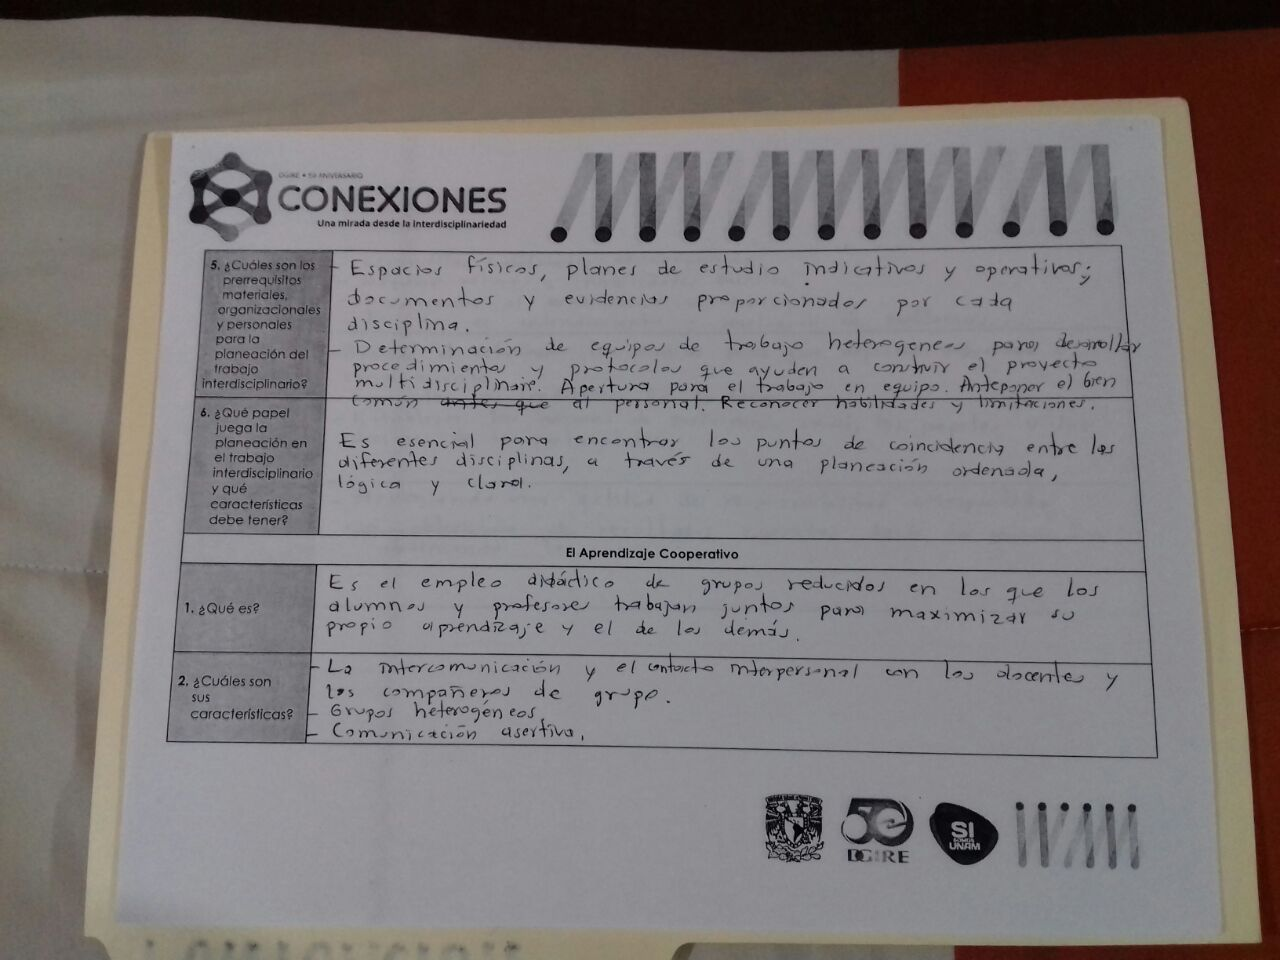 DGIRE • 50 ANIVERSARIO
CONEXIONES
Una mirada desde la interdisciplinariedad
5. ¿Cuáles son los
prerrequisitos
materiales,
organizacionales
y personales
para la
planeación del
trabajo
interdisciplinario?
- Espacios físicos, planes de estudio indicativos y operativos;
documentos y evidencias proporcionados por cada
disciplina.
- Determinación de equipos de trabajo heterogeneos para desarrollar
procedimientos y protocolos que ayuden a construir el proyecto
multidisciplinario. Apertura para el trabajo en equipo. Anteponer el bien
común antes que al personal. Reconocer habilidades y limitaciones.
6. ¿Qué papel
juega la
planeación en
el trabajo
interdisciplinario
y qué
características
debe tener?
Es esencial para encontrar los puntos de coincidencia entre las
diferentes disciplinas, a través de una planeación ordenada,
lógica y clara.
El Aprendizaje Cooperativo
1. ¿Qué es?
Es el empleo didáctico de grupos reducidos en los que los
alumnos y profesores trabajan juntos para maximizar su
propio aprendizaje y el de los demás.
2. ¿Cuáles son
sus
características?
- La intercomunicación y el contacto interpersonal con los docentes y
los compañeros de grupo.
- Grupos heterogéneos.
- Comunicación asertiva.
50
DGIRE
SI
SOMOS
UNAM